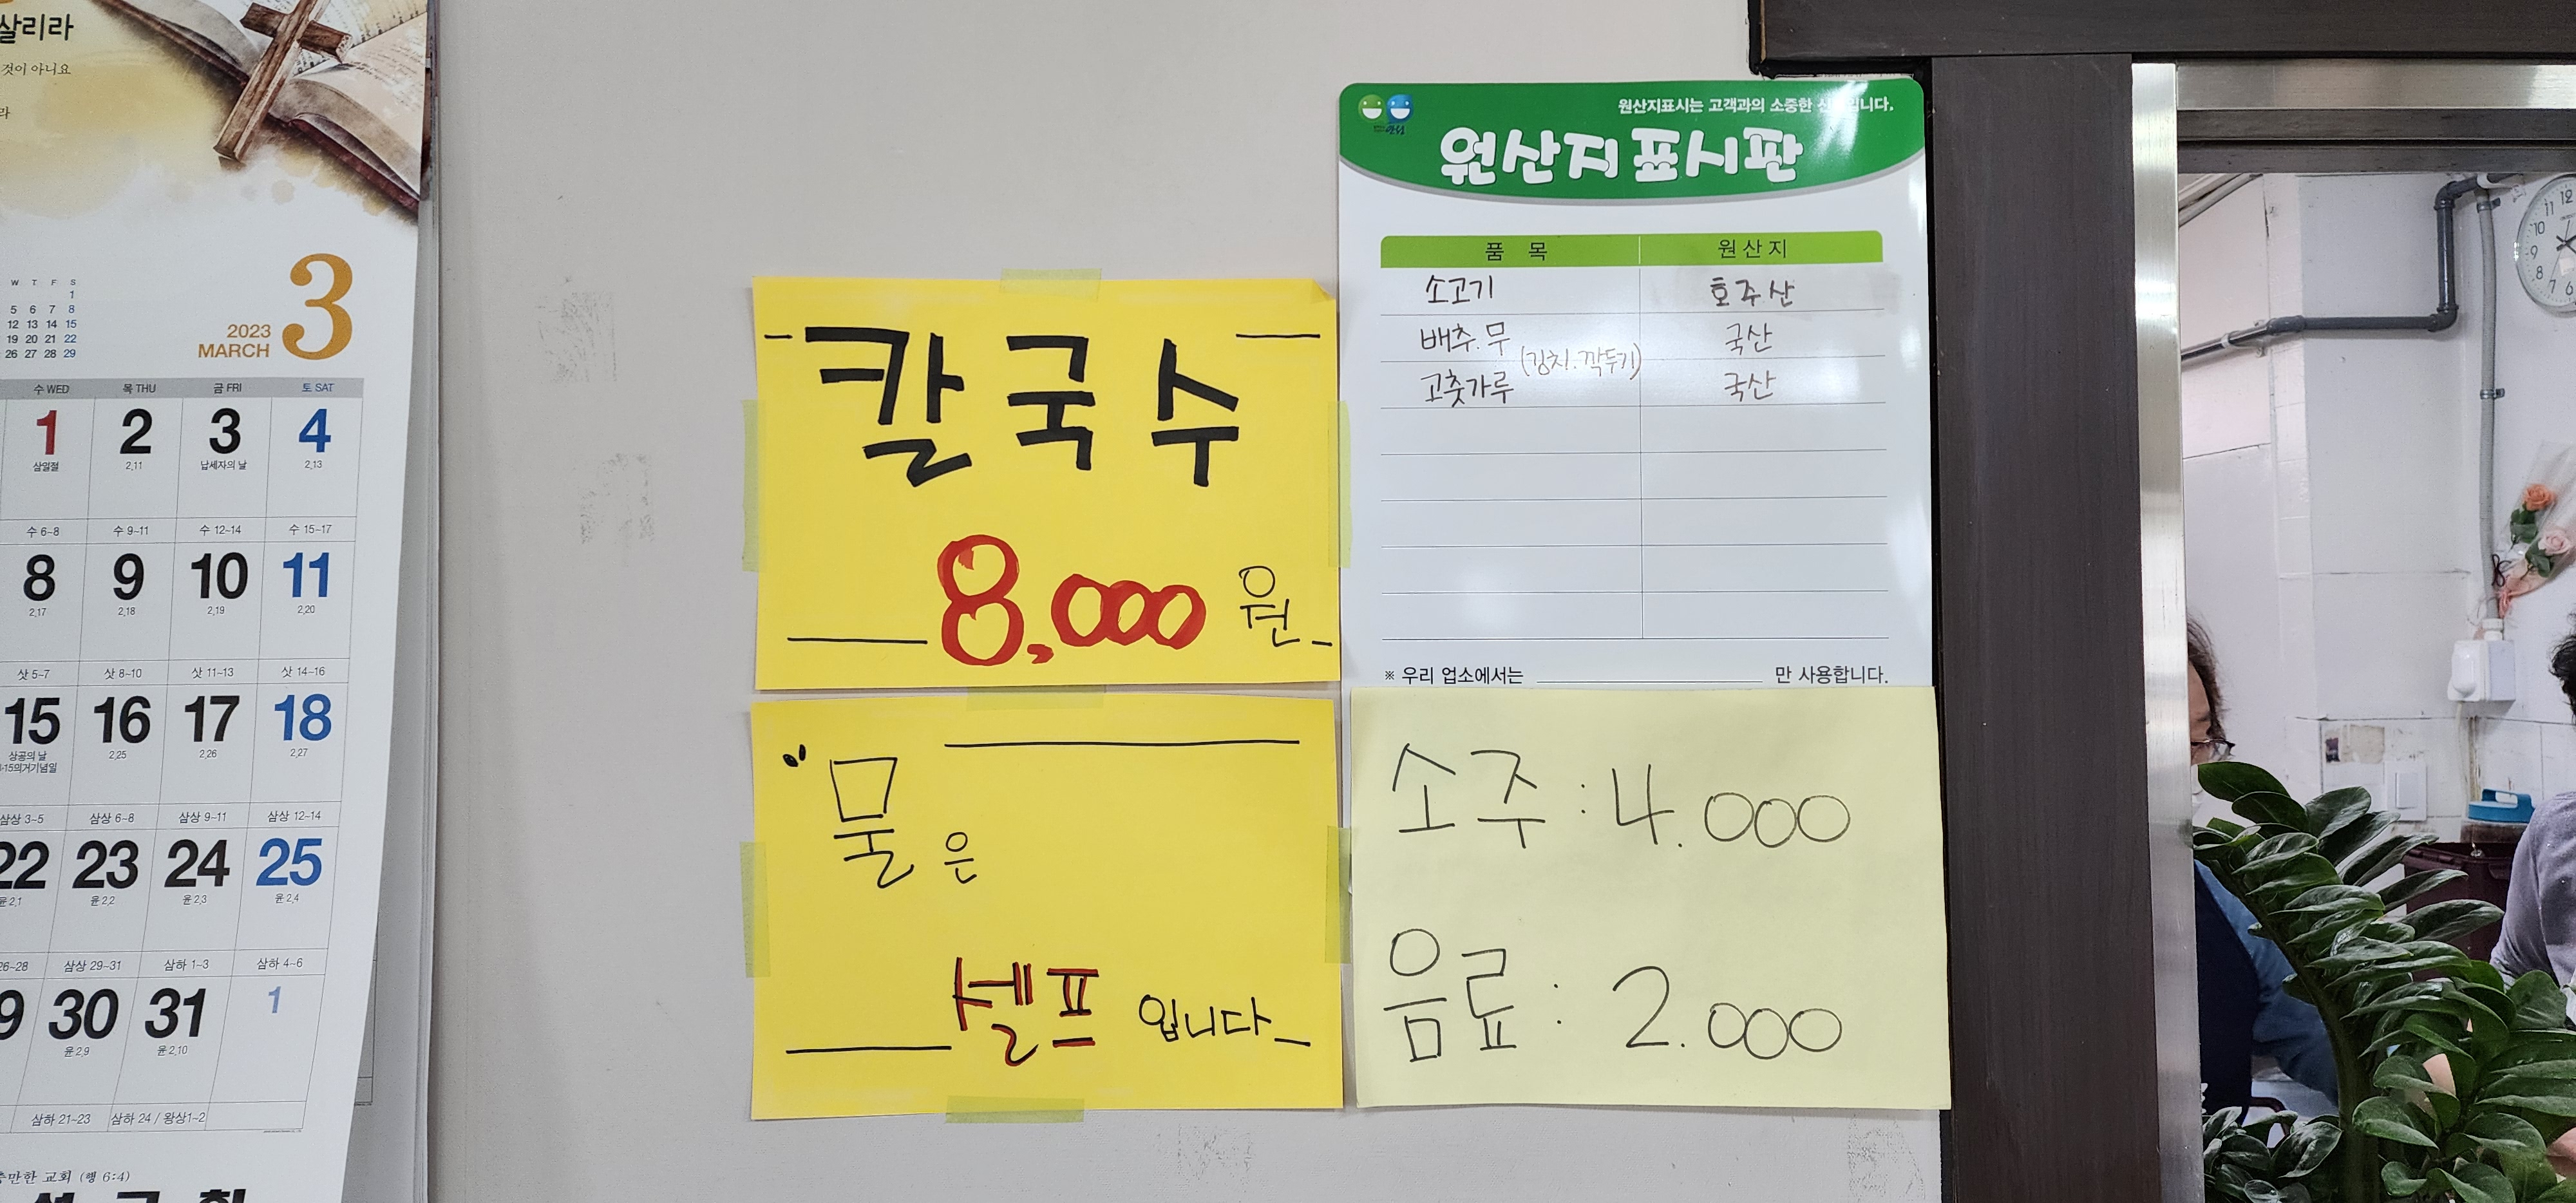 살리라
것이 아니요
라
W T F S
1
5 6 7 8
12 13 14 15
19 20 21 22
26 27 28 29
2023
MARCH
3
수 WED 목 THU 금 FRI 토 SAT
1 2 3 4
삼일절 2.11 납세자의 날 2.13
수 6~8 수 9~11 수 12~14 수 15~17
8 9 10 11
2.17 2.18 2.19 2.20
삿 5~7 삿 8~10 삿 11~13 삿 14~16
15 16 17 18
상공의 날 2.25 2.26 2.27
3·15의거기념일
삼상 3~5 삼상 6~8 삼상 9~11 삼상 12~14
22 23 24 25
윤 2.1 윤 2.2 윤 2.3 윤 2.4
26~28 삼상 29~31 삼하 1~3 삼하 4~6
9 30 31 1
윤 2.9 윤 2.10
삼하 21~23 삼하 24 / 왕상1~2
충만한 교회 (행 6:4)
칼국수
8,000 원
"물은
셀프 입니다
원산지표시는 고객과의 소중한 입니다.
원산지 표시판
품 목 원산지
소고기 호주산
배추.무 국산
(김치.깍두기)
고춧가루 국산
※ 우리 업소에서는 만 사용합니다.
소주 : 4.000
음료 : 2.000
12
11
10
9
8
7 6